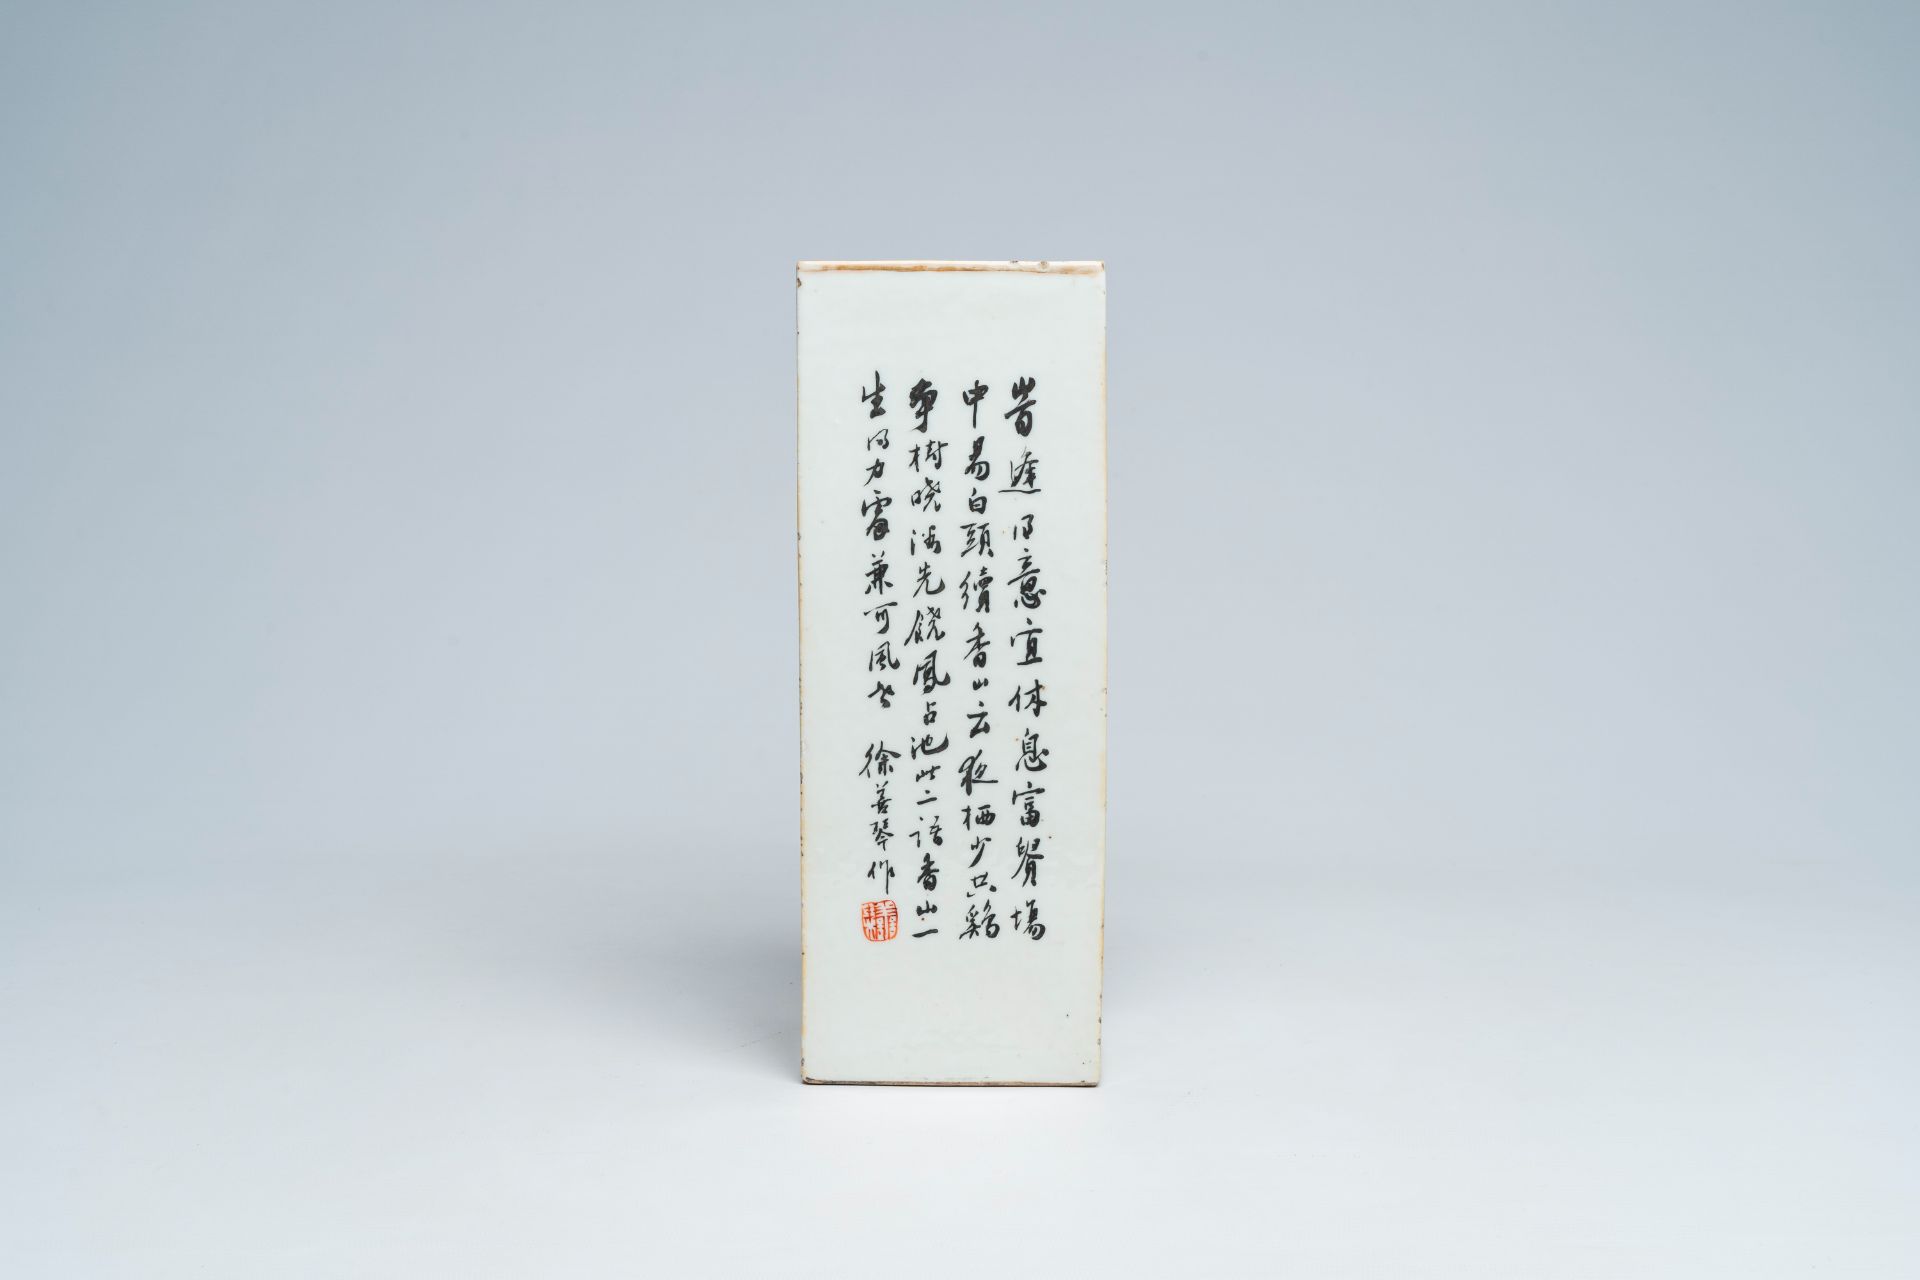 昔逢得意宜休息富貴場
中易白頭續香山云夜栖少共鷄
爭樹曉浴先饒鳳占池此二語香山一
生得力處兼可風世
徐善琴作